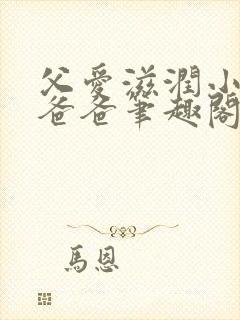 父愛滋潤小
爸爸筆趣閣
馬恩